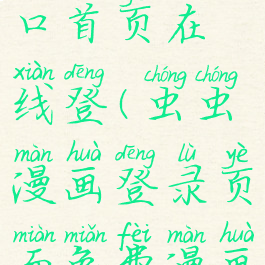 口首页在
xiàn dēng chóng chóng
线登(虫虫
màn huà dēng lù yè
漫画登录页
miàn miǎn fèi màn huà
面免费漫画